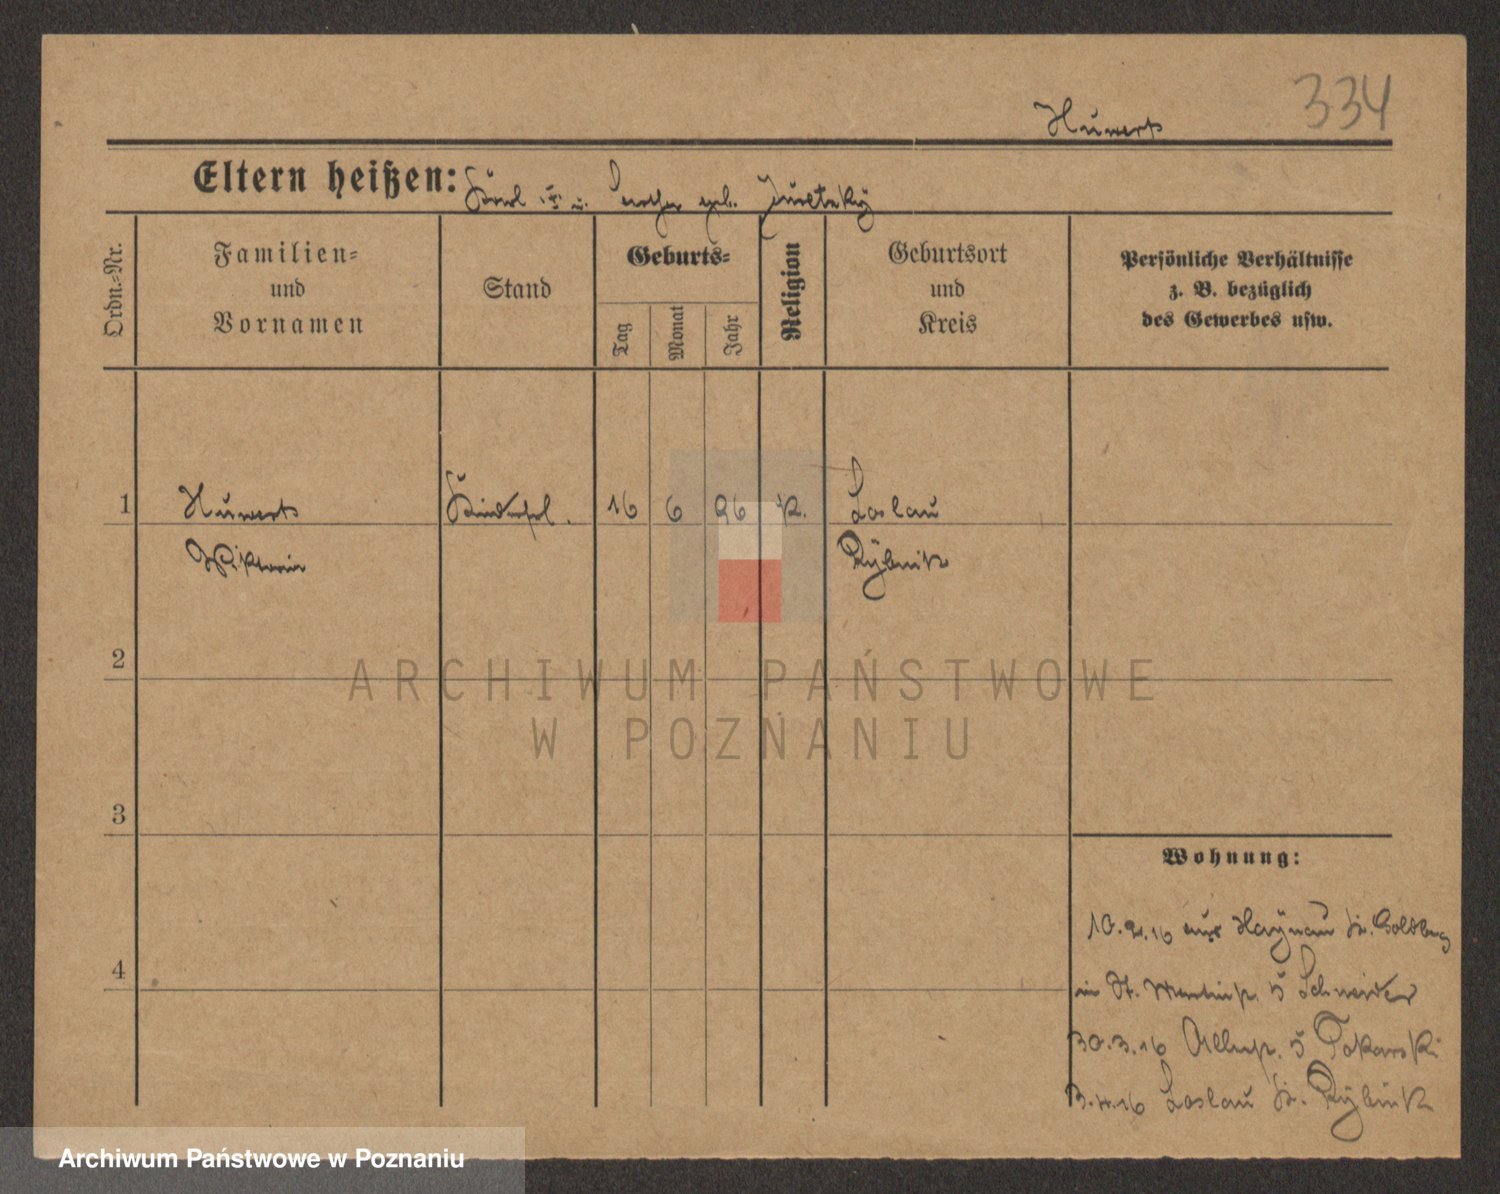 334
Huwerts
Eltern heißen: Karl u. geb.
Ordn.-Nr.
Familien- und Vornamen
Stand
Geburts-
Tag
Monat
Jahr
Religion
Geburtsort und Kreis
Persönliche Verhältnisse z. B. bezüglich des Gewerbes usw.
1 Huwerts 16 6 96 K. Loslau
Wiktoria Rybnik
2
3
4
Wohnung:
10.2.16 aus Haynau Kr. Goldberg
in St. Martinstr. 5 Schneider
30.3.16 5 Tokarski
3.4.16 Loslau Kr. Rybnik
ARCHIWUM PAŃSTWOWE
W POZNANIU
Archiwum Państwowe w Poznaniu